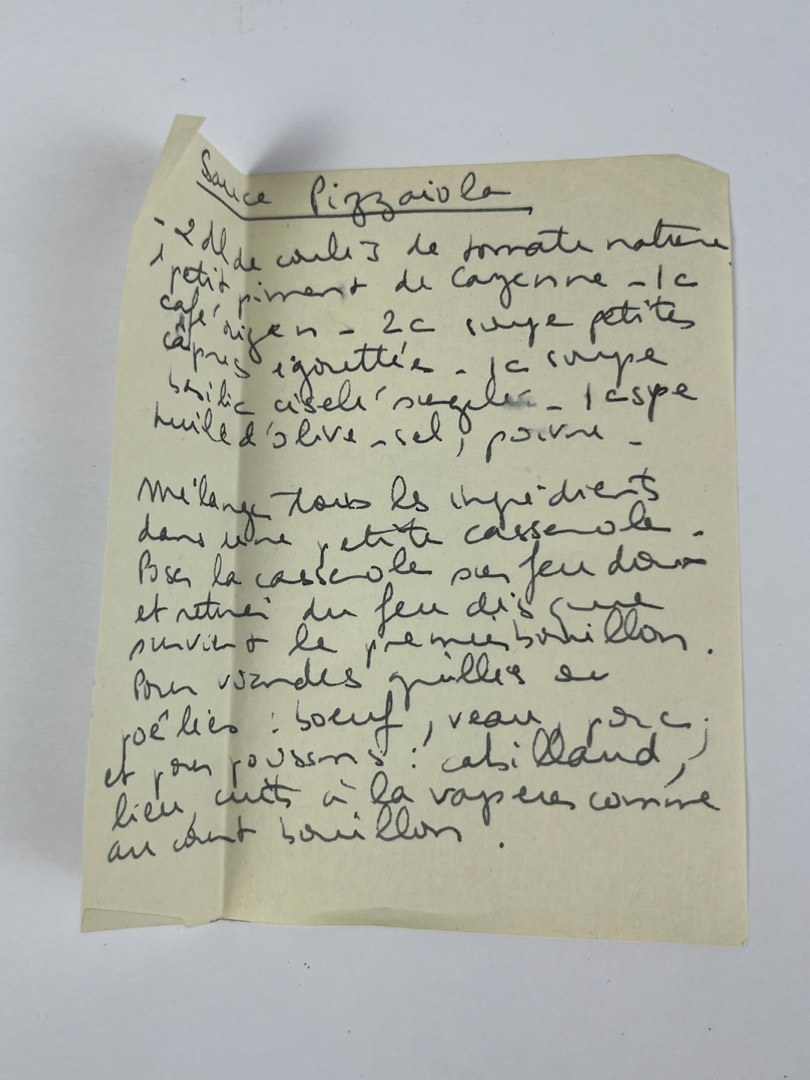 Sauce Pizzaiola
- 2 dl de coulis de tomate nature
1 petit piment de Cayenne - 1c
café origan - 2c soupe petites
câpres égouttées - 1c soupe
basilic ciselé - 1 c spe
huile d'olive - sel, poivre -
Mélanger tous les ingrédients
dans une petite casserole -
Poser la casserole sur feu doux
et retirer du feu dès que
survient le premier bouillon.
Pour viandes grillées ou
poêlées : boeuf, veau, porc ;
et pour poissons : cabillaud,
lieu, cuits à la vapeur comme
au court bouillon.